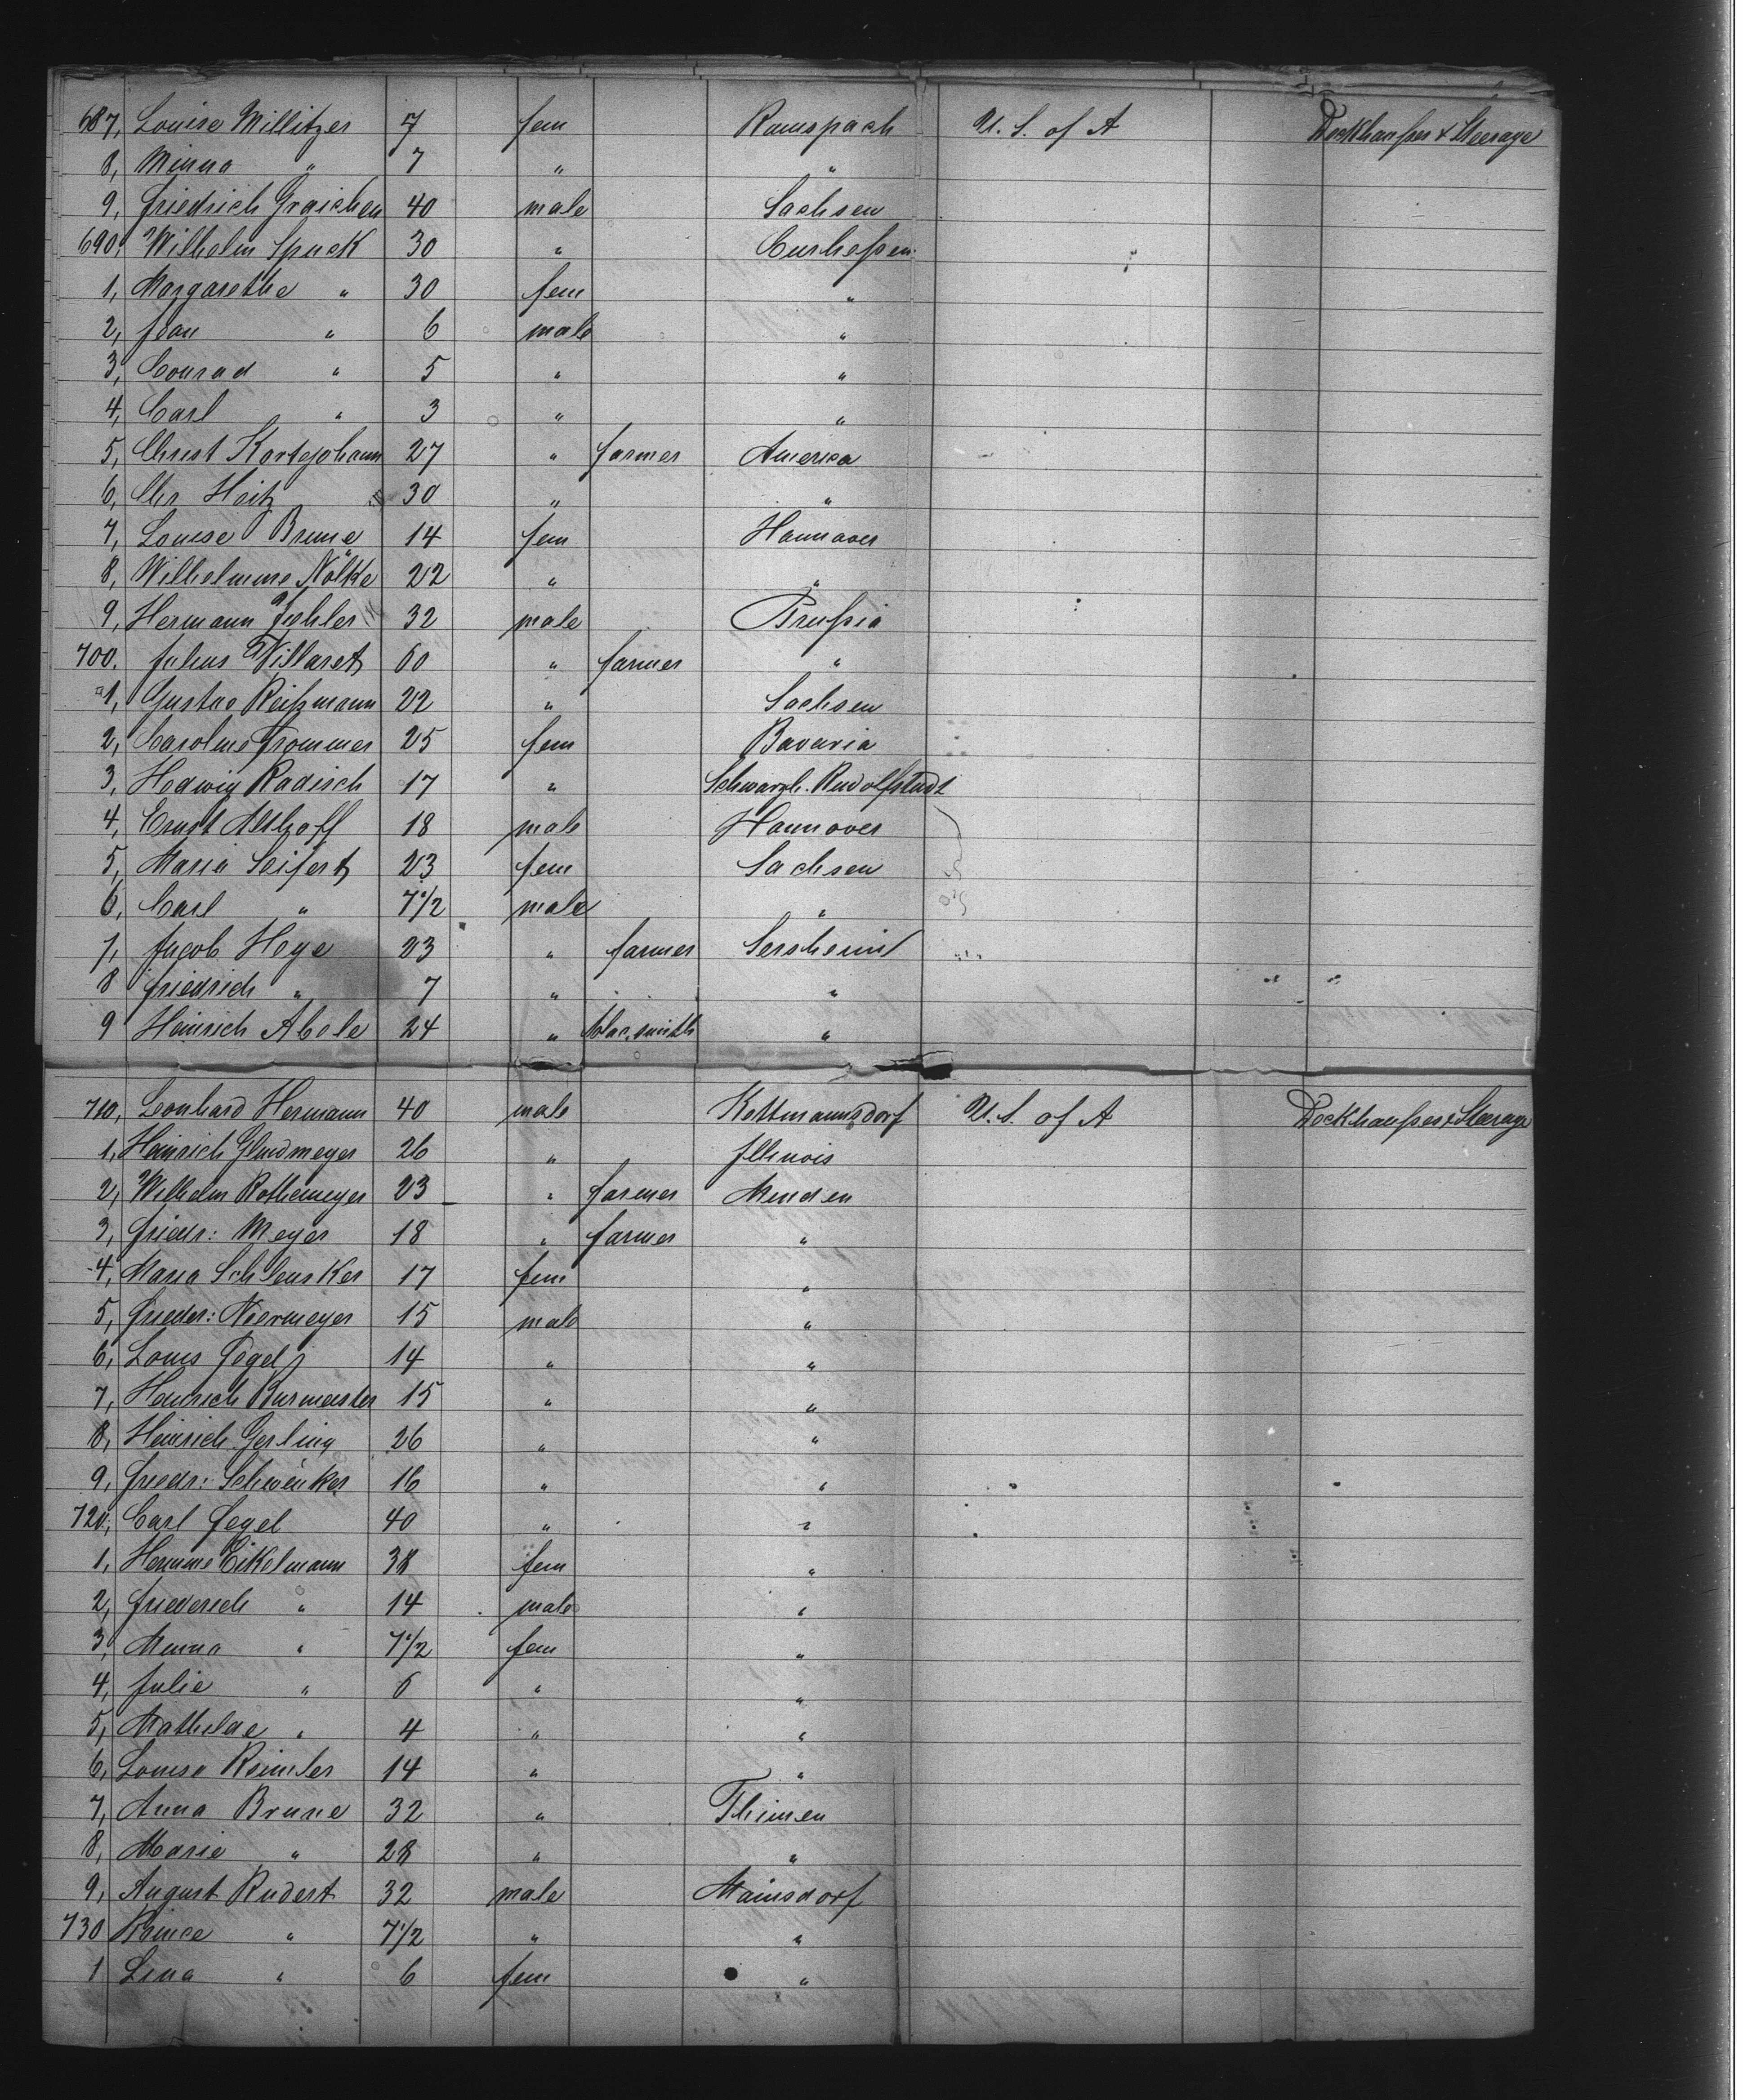 687, Louise Millitzer 7 fem Ramspach U. S. of A Deckhauses & Steerage
8, Minna " 7 " "
9, Friedrich Graichen 40 male Sachsen
690, Wilhelm Spuck 30 " Curhessen
1, Margarethe " 30 fem "
2, Jean " 6 male "
3, Conrad " 5 " "
4, Carl " 3 " "
5, Christ Kortejohann 27 " farmer America
6, Chr Heitz 30 " "
7, Louise Brune 14 fem Hannover
8, Wilhelmine Nölke 22 " "
9, Hermann 32 male Prussia
700. Julius Villaret 60 " farmer "
1, Gustav Reitzmann 22 " Sachsen
2, Caroline Frommer 25 fem Bavaria
3, Hedwig Radisch 17 " Schwarzb. Rudolfstadt
4, Ernst Althoff 18 male Hannover
5, Maria Seifert 23 fem Sachsen
6, Carl " 7 1/2 male "
7, Jacob Heye 23 " farmer Sersheim
8 Friedrich " 7 " "
9 Heinrich Abele 24 " blacsmith "
710, Leonhard Hermann 40 male Kottmannsdorf U. S. of A Deckhauses & Steerage
1, Heinrich Glindmeyer 26 " Illinois
2, Wilhelm Rothemeyer 23 " farmer Minden
3, Friedr: Meyer 18 " farmer "
4, Maria Schlensker 17 fem "
5, Frieder: Niermeyer 15 male "
6, Louis Fegel 14 " "
7, Heinrich Burmeister 15 " "
8, Heinrich Gerling 26 " "
9, Friedr: Schwenker 16 " "
720, Carl Fegel 40 " "
1, Hermine Eikelmann 38 fem "
2, Friederich " 14 male "
3, Minna " 7 1/2 fem "
4, Julie " 6 " "
5, Mathilde " 4 " "
6, Louise Reimler 14 " "
7, Anna Brune 32 " Thimen
8, Marie " 28 " "
9, August Rudert 32 male Mainsdorf
730 " 7 1/2 " "
1 Lina " 6 fem "